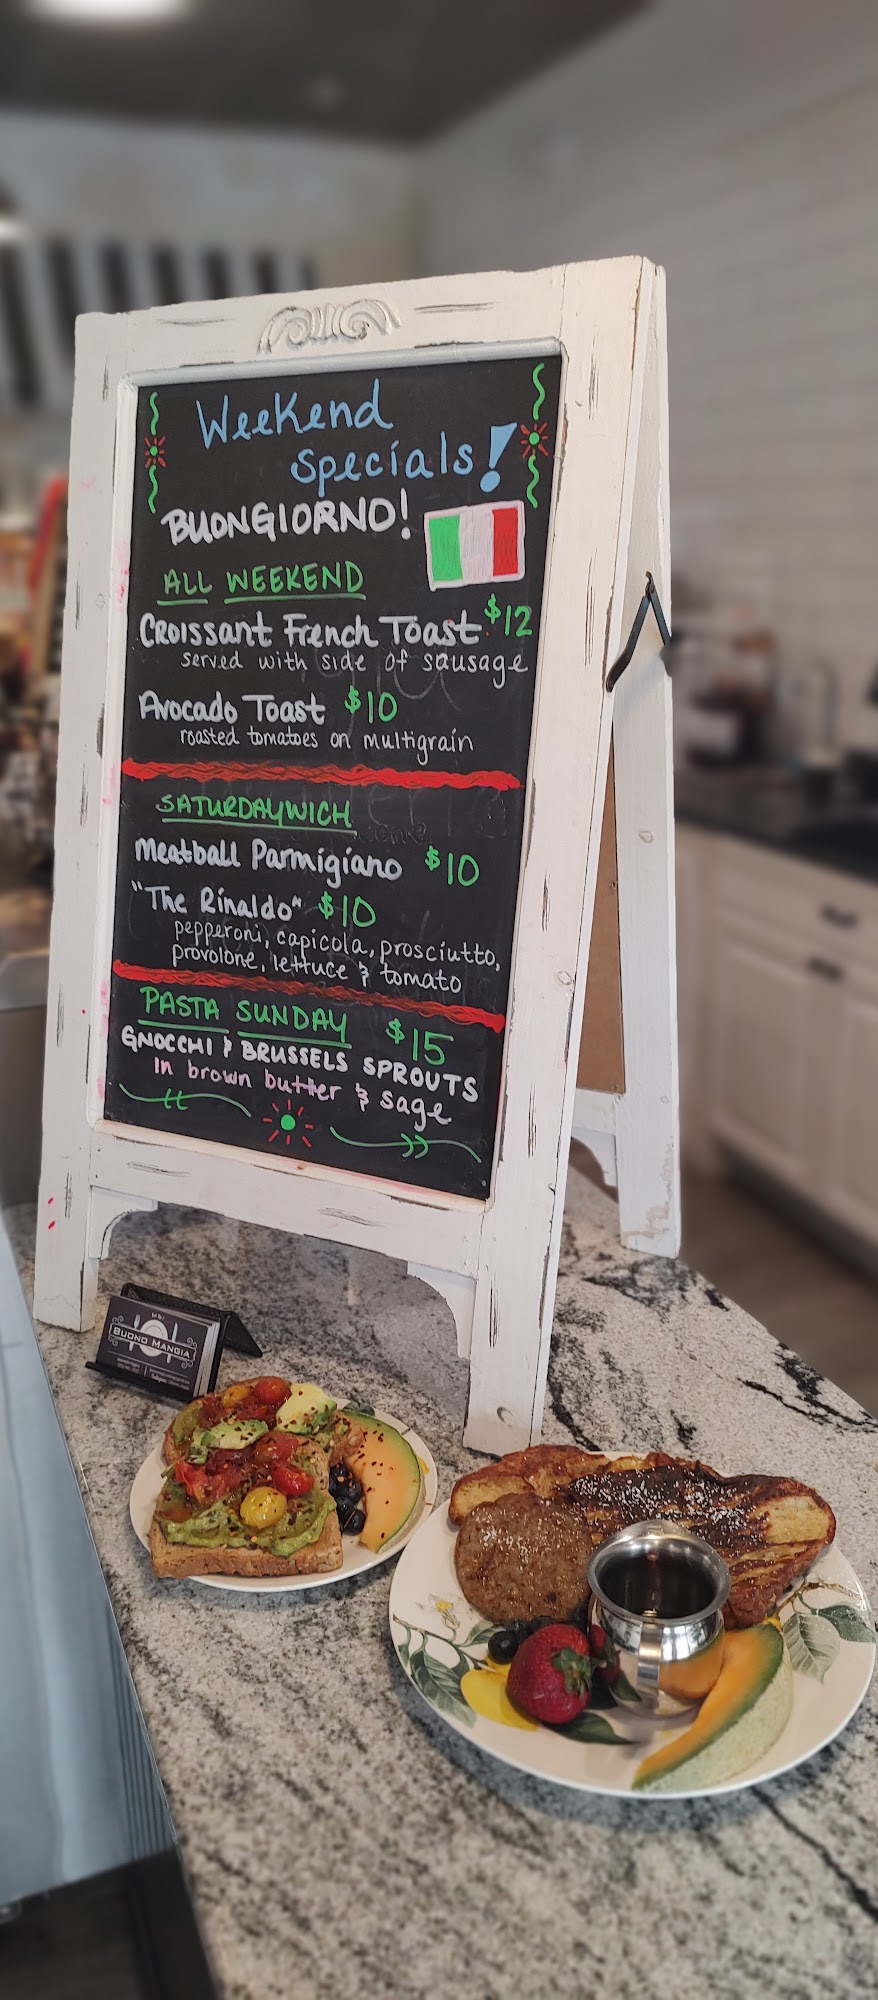 Weekend
Specials!
BUONGIORNO!
ALL WEEKEND
Croissant French Toast $12
served with side of sausage
Avocado Toast $10
roasted tomatoes on multigrain
SATURDAYWICH
Meatball Parmigiano $10
"The Rinaldo" $10
pepperoni, capicola, prosciutto,
provolone, lettuce & tomato
PASTA SUNDAY $15
GNOCCHI & BRUSSELS SPROUTS
in brown butter & sage
BUONO MANGIA